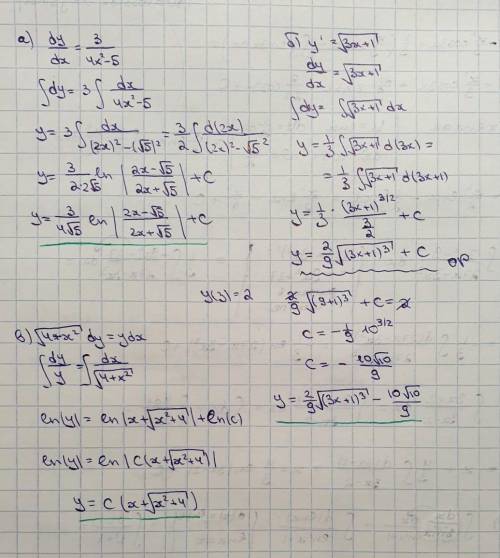 а) dy/dx = 3/(4x²-5)
∫dy = 3∫ dx/(4x²-5)
y = 3∫ dx/((2x)²-(√5)²) = 3/2 ∫ d(2x)/((2x)²-√5²)
y = 3/(2·2√5) ln |(2x-√5)/(2x+√5)| + C
y = 3/(4√5) ln |(2x-√5)/(2x+√5)| + C
б) y' = √(3x+1)
dy/dx = √(3x+1)
∫dy = ∫√(3x+1) dx
y = 1/3 ∫√(3x+1) d(3x) =
= 1/3 ∫√(3x+1) d(3x+1)
y = 1/3 · (3x+1)^(3/2)/(3/2) + C
y = 2/9 √((3x+1)³) + C
ор
y(3) = 2
2/9 √((9+1)³) + C = 2
C = -1/9 10^(3/2)
C = - 10√10/9
y = 2/9 √((3x+1)³) - 10√10/9
в) √(4+x²) dy = ydx
∫ dy/y = ∫ dx/√(4+x²)
ln|y| = ln|x+√(x²+4)| + ln(c)
ln|y| = ln|C(x+√(x²+4)|
y = C (x+√(x²+4))